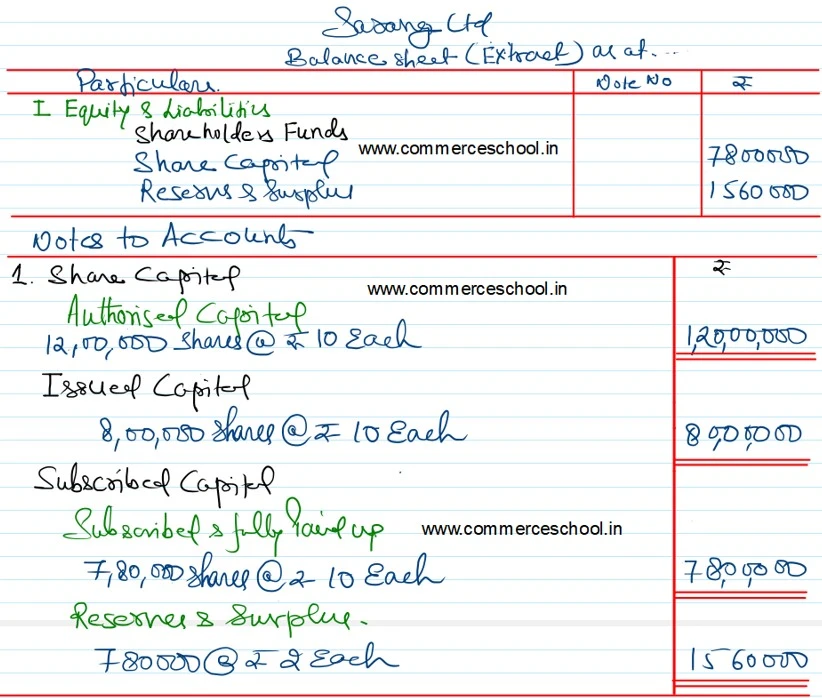 Sasang Ltd
Balance sheet (Extract) as at....
Particulars. Note No ₹
I Equity & Liabilities
Shareholders Funds
www.commerceschool.in
Share Capital 7800000
Reserves & Surplus 1560000
Notes to Accounts
1. Share Capital ₹
www.commerceschool.in
Authorised Capital
12,00,000 shares @ ₹ 10 Each 1,20,00,000
Issued Capital
8,00,000 shares @ ₹ 10 Each 80,00,000
Subscribed Capital
Subscribed & fully Paid up www.commerceschool.in
7,80,000 shares @ ₹ 10 Each 78,00,000
Reserves & Surplus.
780000 @ ₹ 2 Each 1560000